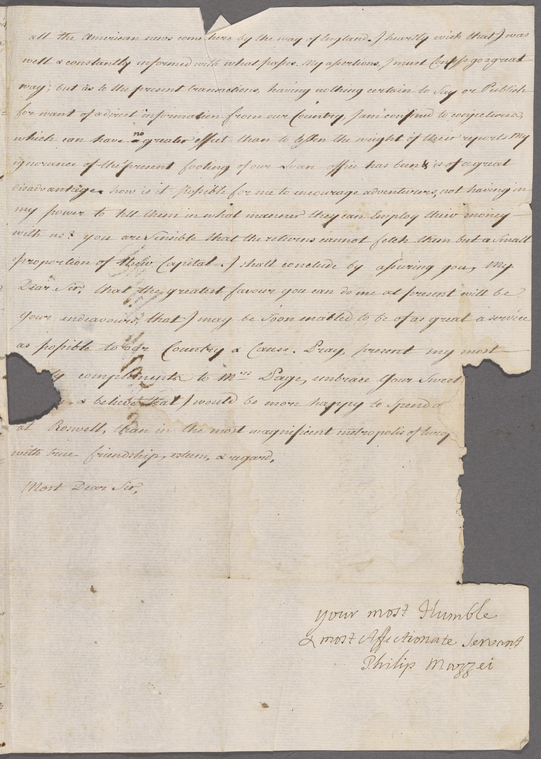 all the American news come here by the way of England. I heartily wish that I was
well & constantly informed with what passes. My assertions, I must confess go a great
way; but as to the present transactions, having nothing certain to Say or Publish
for want of a direct information from our Country, I am confined to conjectures,
which can have no greater effect than to lessen the weight of their reports. My
ignorance of the present footing of our Loan office has been, & is of a great
disadvantage. how is it possible for me to encourage adventurers, not having in
my power to tell them in what manner they can employ their money
with us? you are Sensible that the returns cannot fetch them but a Small
proportion of their Capital. I shall conclude by assuring you, My
Dear Sir, that the greatest favour you can do me at present will be
Your endeavours, that I may be Soon enabled to be of as great a service
as possible to our Country & Cause. Pray, present my most
compliments to Mrs. Page, embrace Your Sweet
& believe that I would be more happy to Spend a
at Roswell, than in the most magnificent metropolis of
with true friendship, esteem, & regard,
Most Dear Sir,
your most Humble
& most Affectionate Servant
Philip Mazzei